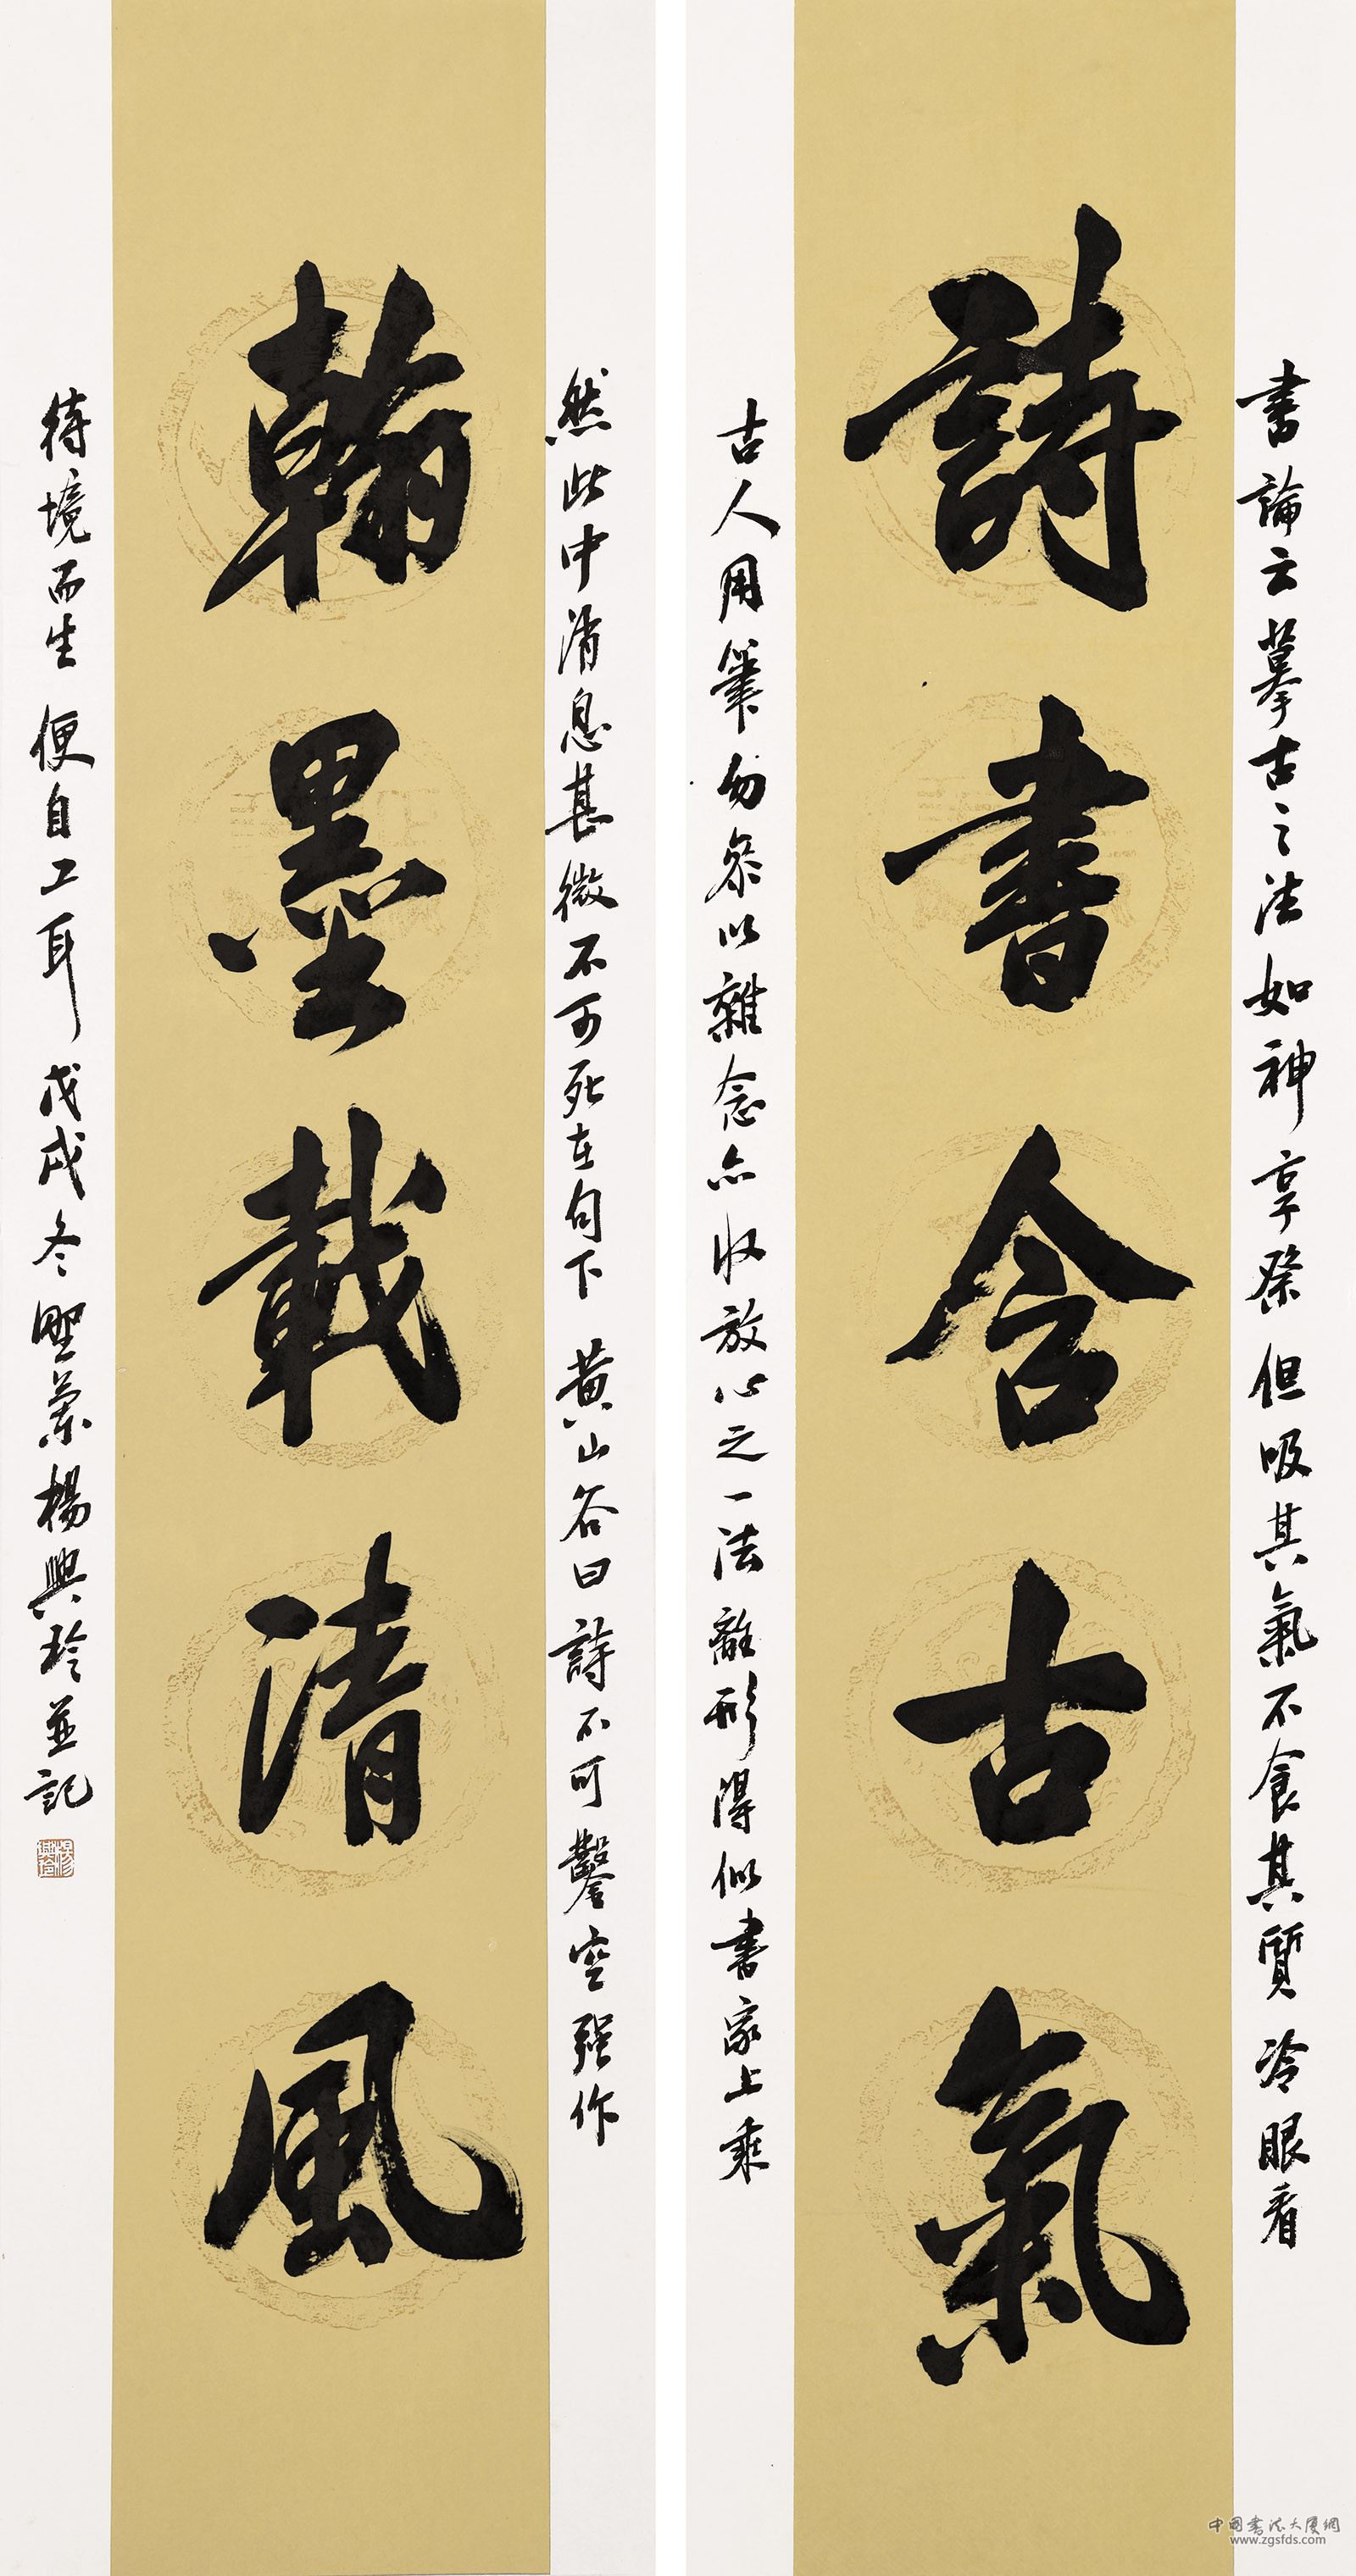 書論云摹古之法如神享祭但吸其氣不食其質冷眼看
詩書含古氣
古人用筆勿參以雜念亦收放心之一法離形得似書家上乘
然此中消息甚微不可死在句下黃山谷曰詩不可鑿空強作
翰墨載清風
待境而生便自工耳戊戌冬墅蘭楊興玲並記
中國書法大廈網
www.zgsfds.com